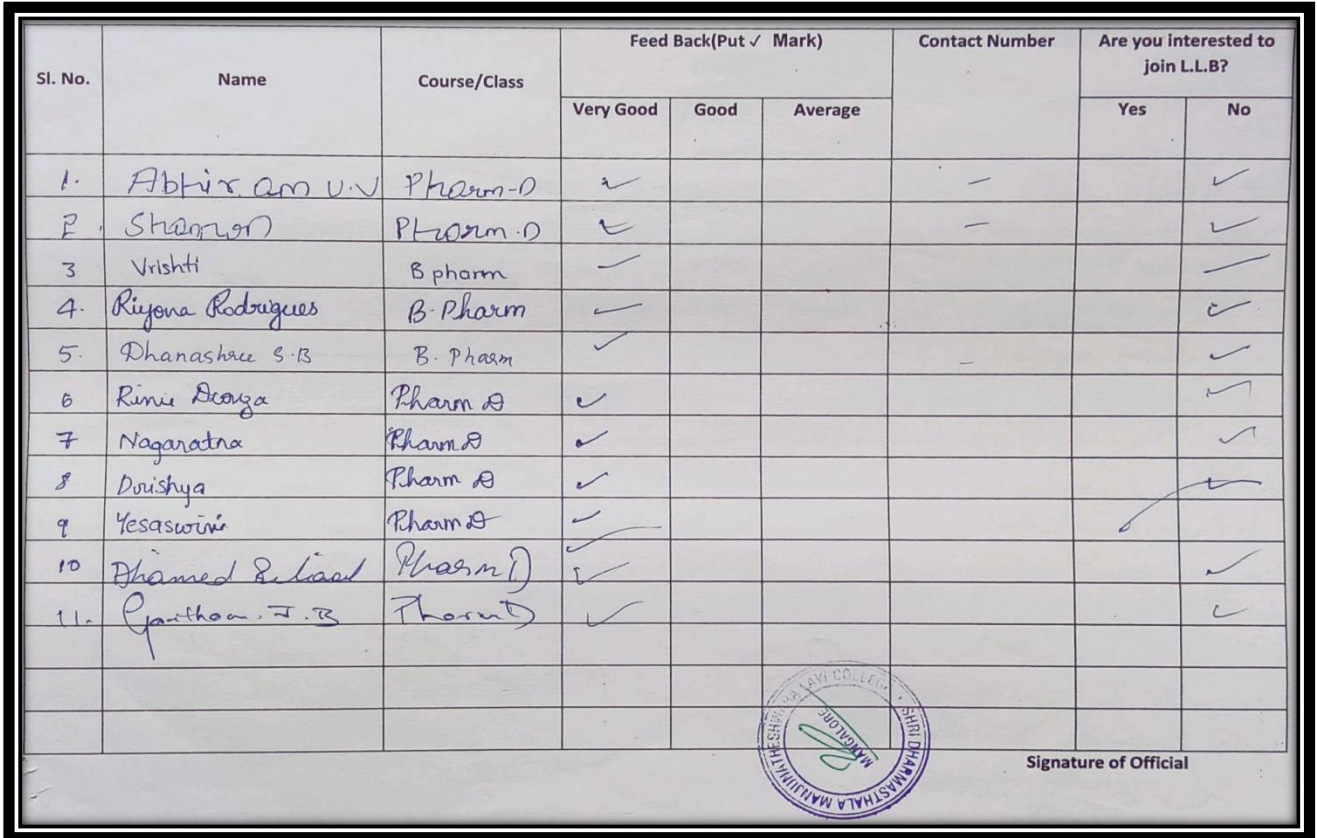 Sl. No. Name Course/Class Feed Back(Put ✓ Mark) Contact Number Are you interested to join L.L.B?
Very Good Good Average Yes No
1. Abhiram U.V Pharm-D ✓ – ✓
2. Pharm.D ✓ – ✓
3 Vrishti B pharm ✓ ✓
4. Riyona Rodrigues B-Pharm ✓ ✓
5. Dhanashree S.B B. Pharm ✓ – ✓
6 Rinie Dcouza Pharm D ✓ ✓
7 Nagaratna Pharm D ✓ ✓
8 Drishya Pharm D ✓ ✓
9 Yesaswini Pharm D ✓ ✓
10 Ahamed Pharm D ✓ ✓
11. J.B Pharm D ✓ ✓
SHRI DHARMASTHALA MANJUNATHESHWARA LAW COLLEGE
MANGALORE
Signature of Official